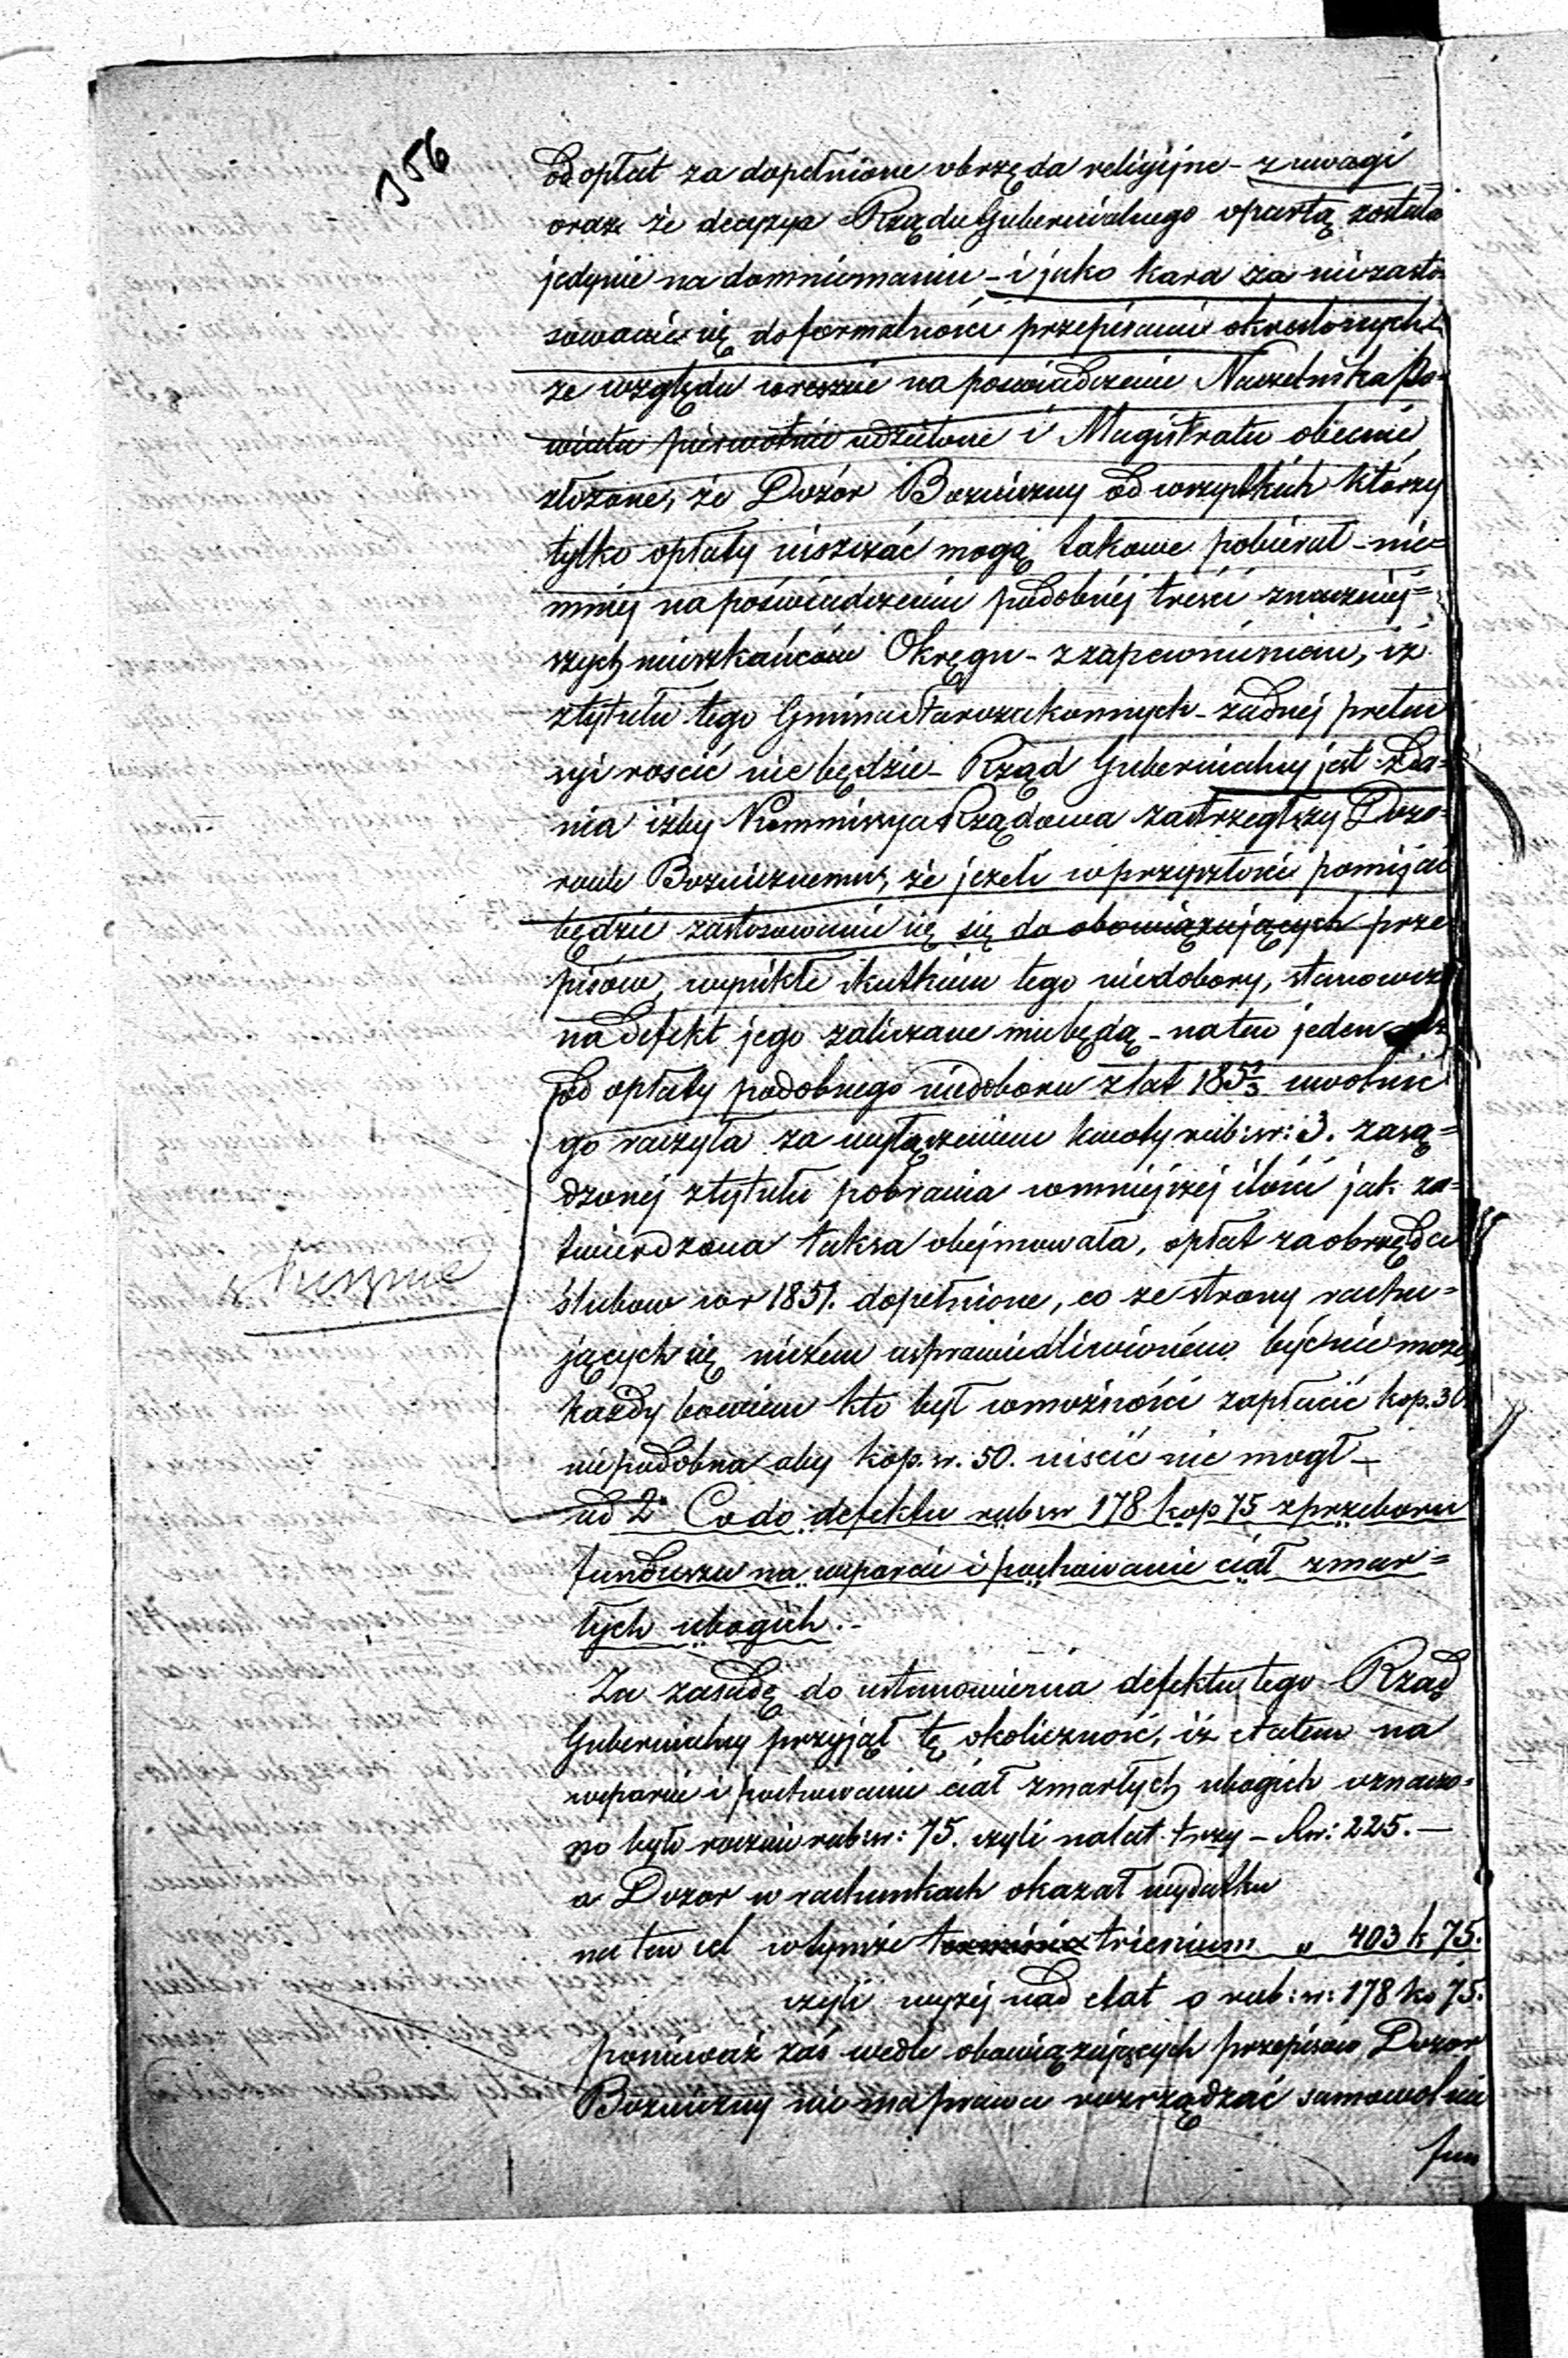 356
od opłat za dopełnione obrzęda religijne – z uwagi
oraz że decyzya Rządu Gubernialnego opartą została
jedynie na domniemaniu – i jako kara za niezasto
sowanie się do formalności przepisami określonych
ze względu wreszcie na poświadczenie Naczelnika Po=
wiatu pierwotnie udzielone i Magistratu obecnie
złożone, że Dozór Bożniczny od wszystkich którzy
tylko opłaty uiszczać mogą takowe pobierał – nie=
mniej na poświadczeniu podobnéj treści znaczniej=
szych mieszkańców Okręgu – z zapewnieniem, iż
z tytułu tego Gmina Starozakonnych – żadnej preten
syi rościć nie będzie – Rząd Gubernialny jest zda=
nia iżby Kommissya Rządowa zastrzegłszy Dozo=
rowi Bożnicznemu, że jeżeli w przyszłości pomijać
będzie zastosowanie się się do obowiązujących prze
pisów, wynikłe skutkiem tego niedobory, stanowczo
na defekt jego zaliczane będą – na ten jeden raz
od opłaty podobnego niedoboru z lat 185 1/3 uwolnić
go raczyła za wyłączeniem kwoty rub: sr: 3. zasą=
dzonej z tytułu pobrania w mniejszej ilości jak za=
twierdzona taksa obejmowała, opłat za obrzęda
ślubow w r 1851. dopełnione, co ze strony rachu=
jących się niczém usprawiedliwioném być nie może
każdy bowiem kto był w możności zapłacić kop. 30
niepodobna aby kop. sr. 50. uiścić nie mogł –
ad 2° Co do defektu rub sr 178 kop 75 z przeboru
funduszu na wsparcie i pochowanie ciał zmar=
łych ubogich. –
Za zasadę do ustanowienia defektu tego Rząd
Gubernialny przyjął tę okoliczność, iż etatem na
wsparcie i pochowanie ciał zmarłych ubogich oznaczo=
no było rocznie rub: sr: 75. czyli na lat trzy – Rsr: 225. –
a Dozor w rachunkach okazał wydatku
na ten cel w tymże trienium „ 403 k 75.
czyli wyżej nad etat o rub: sr: 178 ko 75.
ponieważ zaś wedle obowiązujących przepisow Dozor
Bożniczny nie ma prawa rozrządzać samowolnie
fun